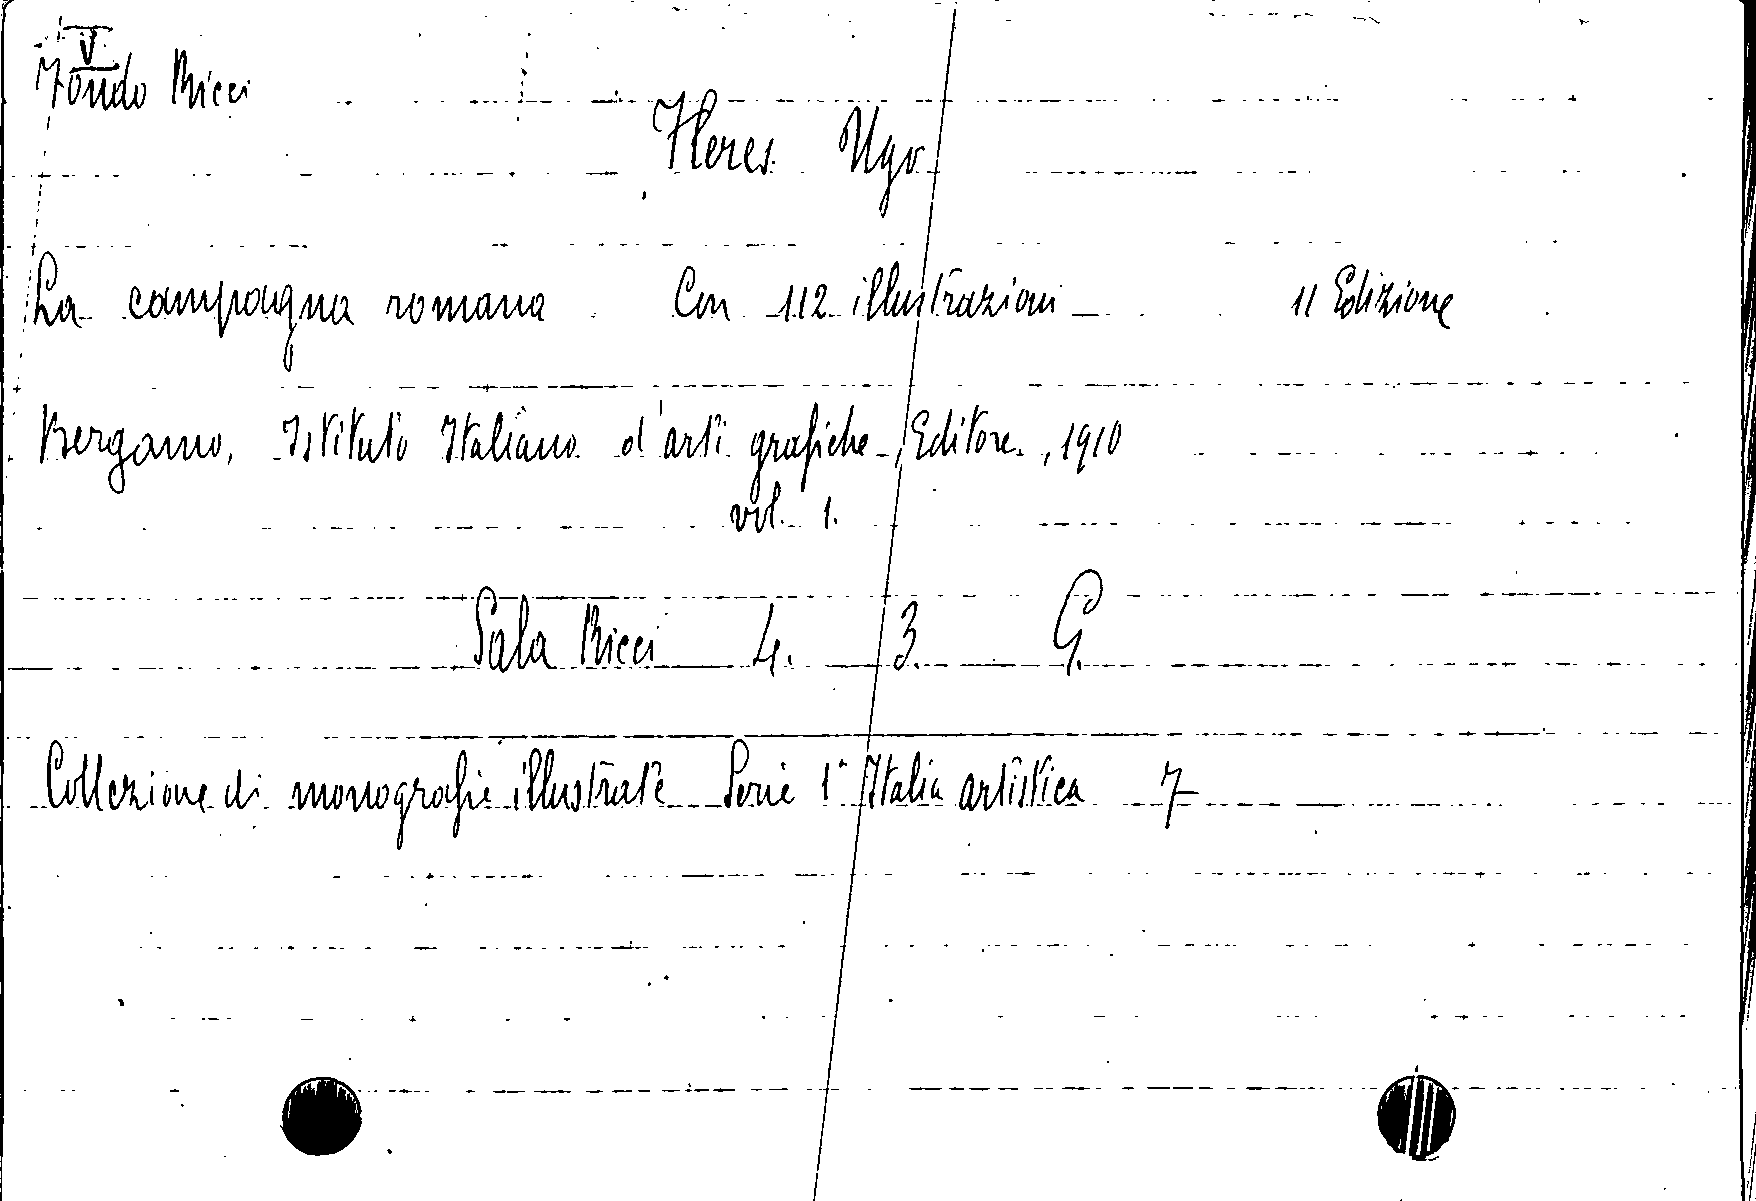 V
Fondo Ricci
Fleres Ugo
La campagna romana Con 112 illustrazioni II Edizione
Bergamo, Istituto Italiano d'arti grafiche, Editore, 1910
vol. 1.
Sala Ricci 4. 3. G.
Collezione di monografie illustrate Serie 1ª Italia artistica 7